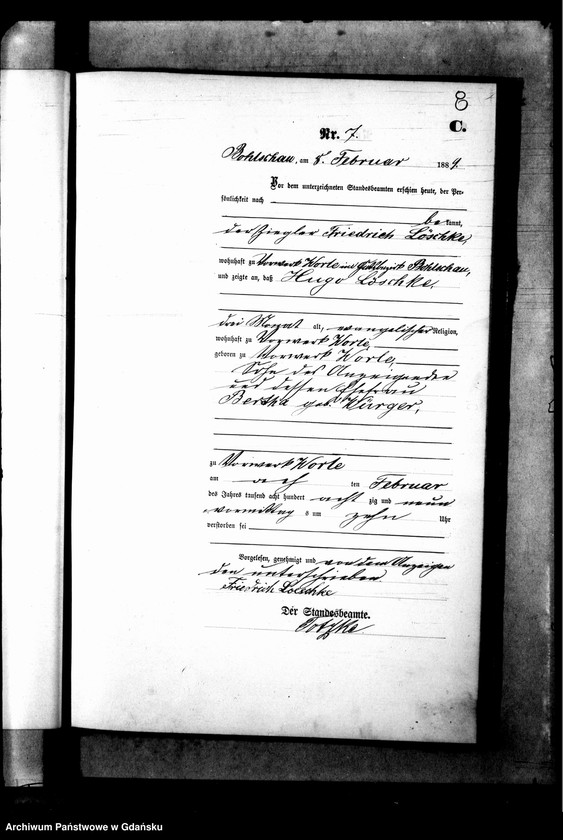 8
C.
Nr. 7.
Bohlschau, am 8. Februar 1889.
Vor dem unterzeichneten Standesbeamten erschien heute, der Per-
sönlichkeit nach
be kannt,
der Ziegler Friedrich Löschke,
wohnhaft zu Vorwerk Worle im Gutsbezirk Bohlschau,
und zeigte an, daß Hugo Löschke,
drei Monat alt, evangelischer Religion,
wohnhaft zu Vorwerk Worle,
geboren zu Vorwerk Worle,
Sohn des Anzeigenden
und dessen Ehefrau
Bertha geb. Würger,
zu Vorwerk Worle
am ach ten Februar
des Jahres tausend acht hundert acht zig und neun
vormittags um zehn Uhr
verstorben sei
Vorgelesen, genehmigt und von dem Anzeigen
den unterschrieben
Friedrich Loeschke
Der Standesbeamte.
Archiwum Państwowe w Gdańsku